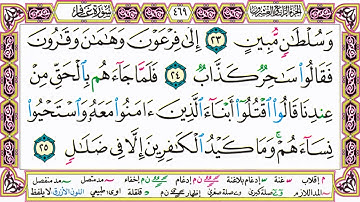 سورة غافر ٤٦٩ الجزء الرابع والعشرون
وَسُلْطَٰنٍ مُّبِينٍ ٢٣ إِلَىٰ فِرْعَوْنَ وَهَٰمَٰنَ وَقَٰرُونَ
فَقَالُوا۟ سَٰحِرٌ كَذَّابٌ ٢٤ فَلَمَّا جَآءَهُم بِٱلْحَقِّ مِنْ
عِندِنَا قَالُوا۟ ٱقْتُلُوٓا۟ أَبْنَآءَ ٱلَّذِينَ ءَامَنُوا۟ مَعَهُۥ وَٱسْتَحْيُوا۟
نِسَآءَهُمْ ۚ وَمَا كَيْدُ ٱلْكَٰفِرِينَ إِلَّا فِى ضَلَٰلٍ ٢٥